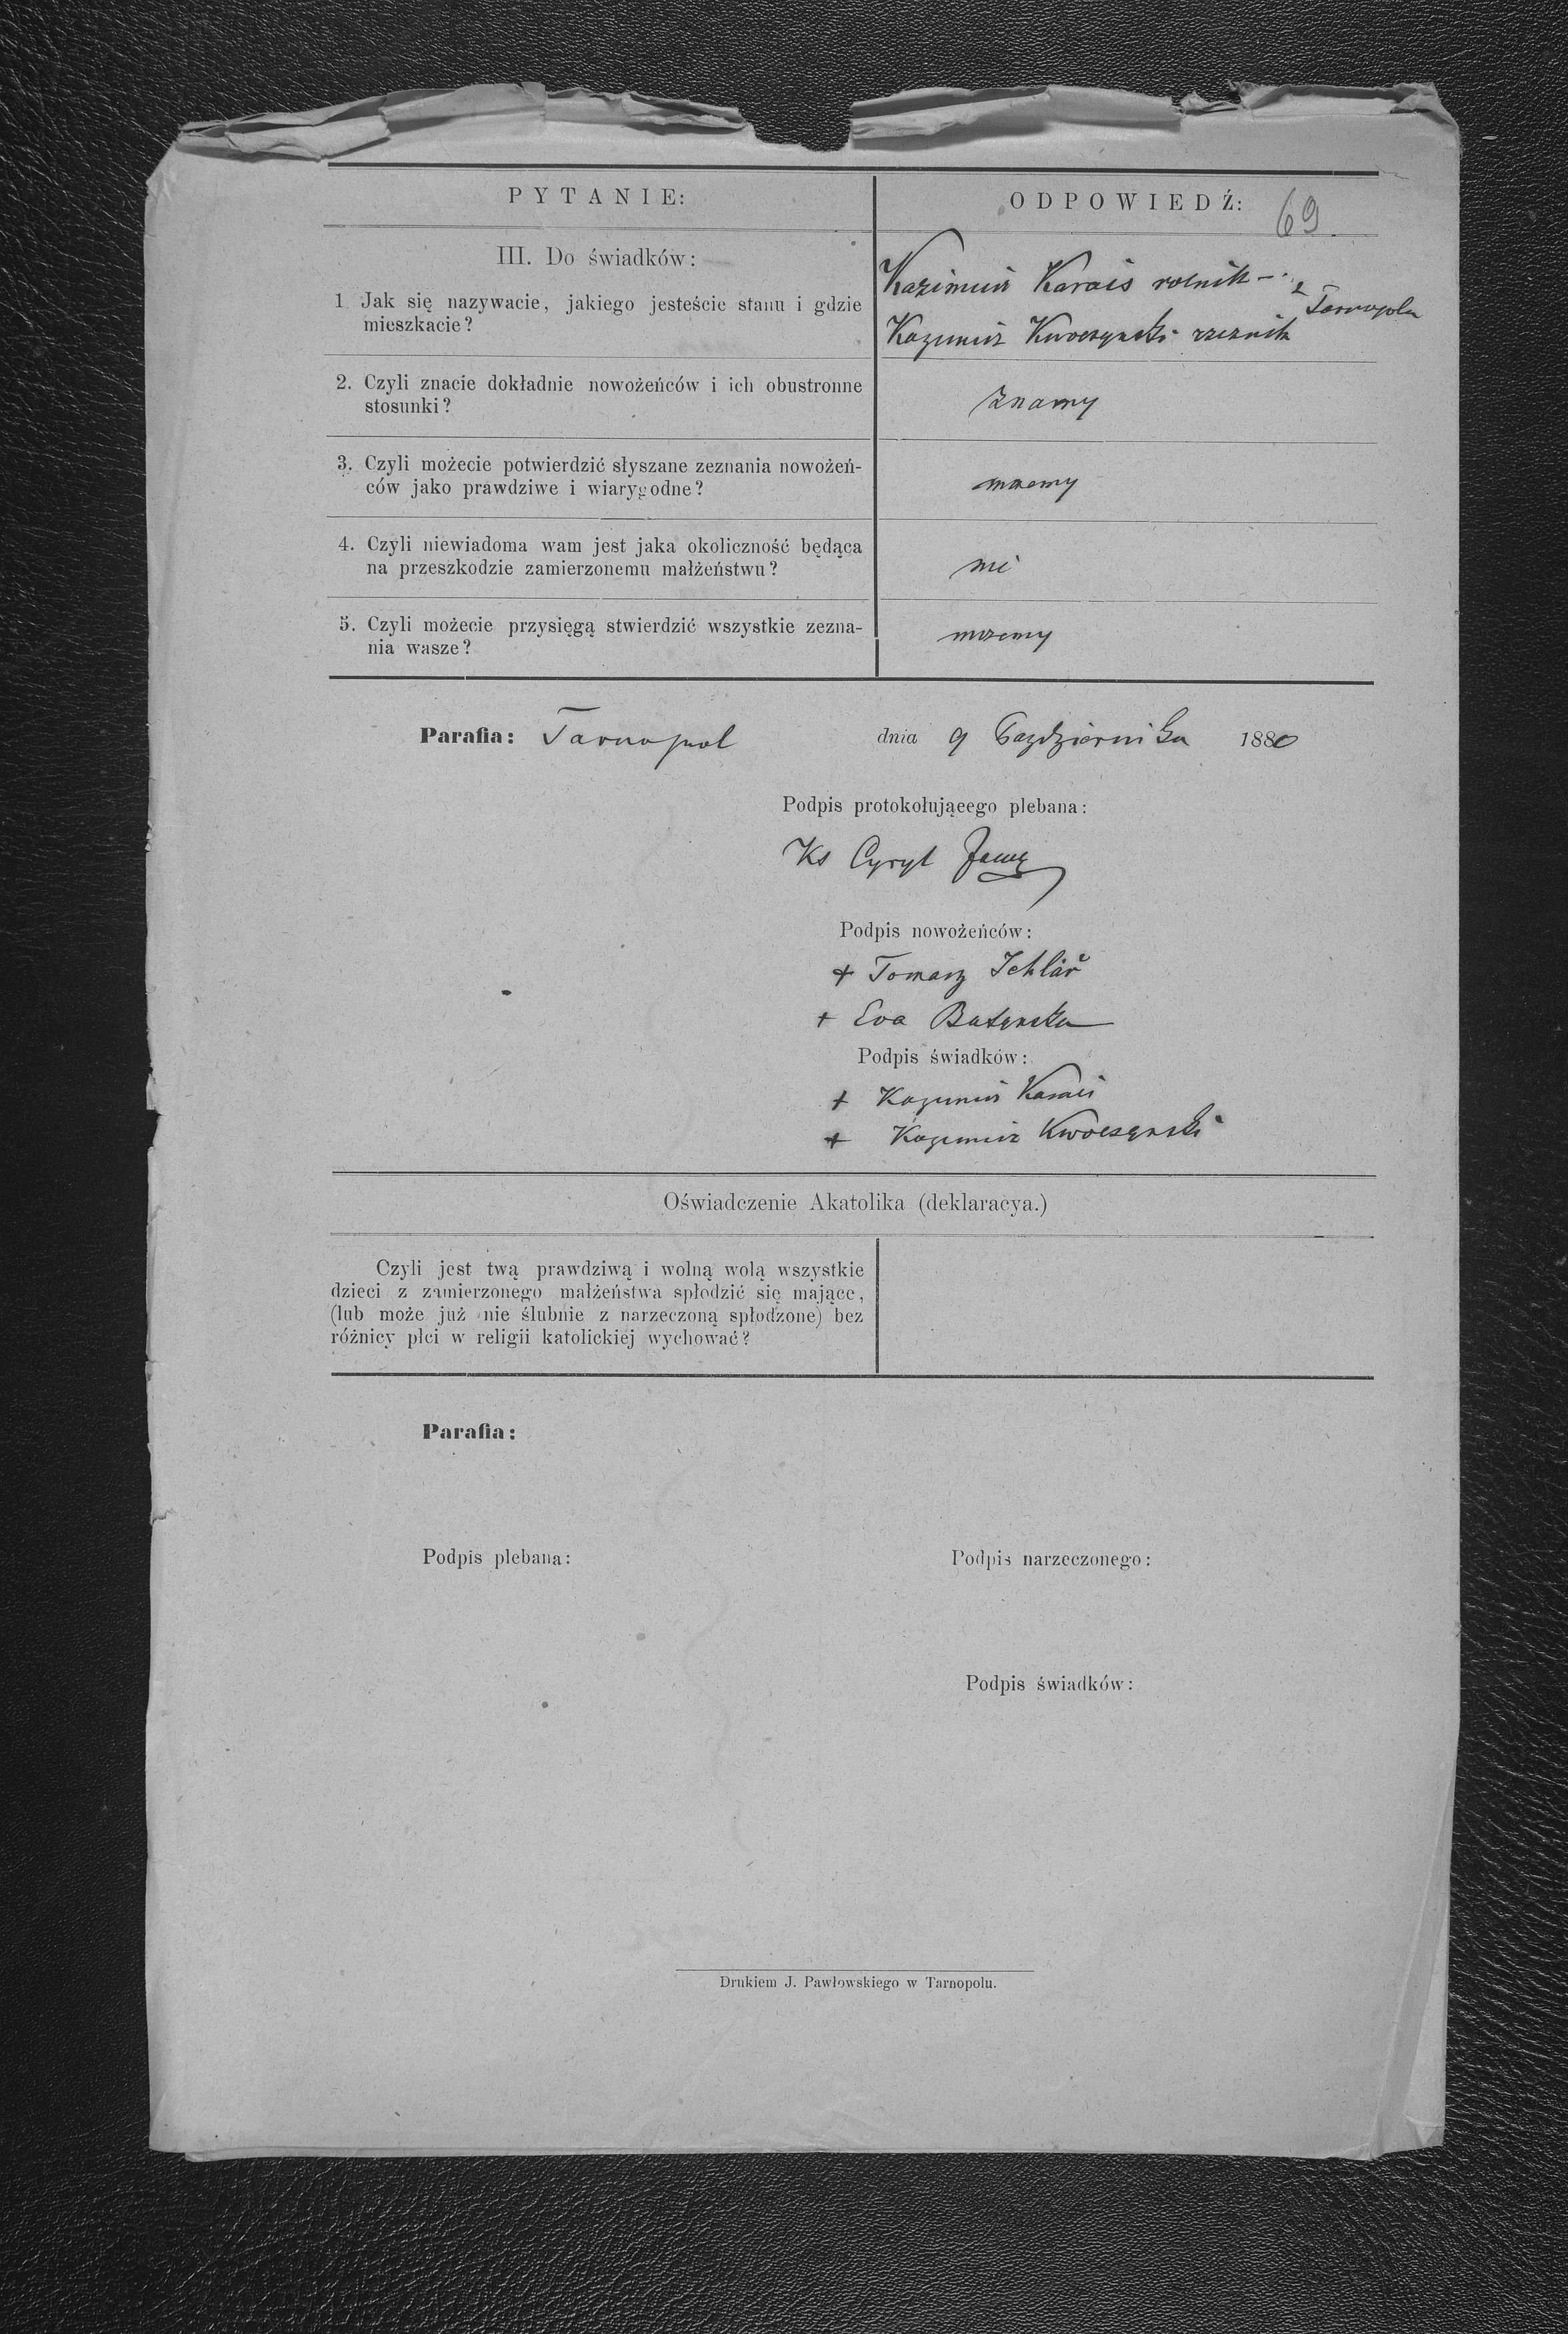 PYTANIE:
ODPOWIEDŹ: 69
III. Do świadków:
1. Jak się nazywacie, jakiego jesteście stanu i gdzie
mieszkacie?
Kazimierz Karais rolnik - z
Tarnopola
Kazimierz Kwoczynski rzeznik
2. Czyli znacie dokładnie nowożeńców i ich obustronne
stosunki?
znamy
3. Czyli możecie potwierdzić słyszane zeznania nowożeń-
ców jako prawdziwe i wiarygodne?
mozemy
4. Czyli niewiadoma wam jest jaka okoliczność będąca
na przeszkodzie zamierzonemu małżeństwu?
nie
5. Czyli możecie przysięgą stwierdzić wszystkie zezna-
nia wasze?
mozemy
Parafia: Tarnopol dnia 9 Pazdziernika 1880
Podpis protokołująeego plebana:
Ks Cyryl
Podpis nowożeńców:
+ Tomasz
+ Eva
Podpis świadków:
+ Kazimierz Karais
+ Kazimierz Kwoczynski
Oświadczenie Akatolika (deklaracya.)
Czyli jest twą prawdziwą i wolną wolą wszystkie
dzieci z zamierzonego małżeństwa spłodzić się mające,
(lub może już nie ślubnie z narzeczoną spłodzone) bez
różnicy płci w religii katolickiej wychować?
Parafia:
Podpis plebana:
Podpis narzeczonego:
Podpis świadków:
Drukiem J. Pawłowskiego w Tarnopolu.